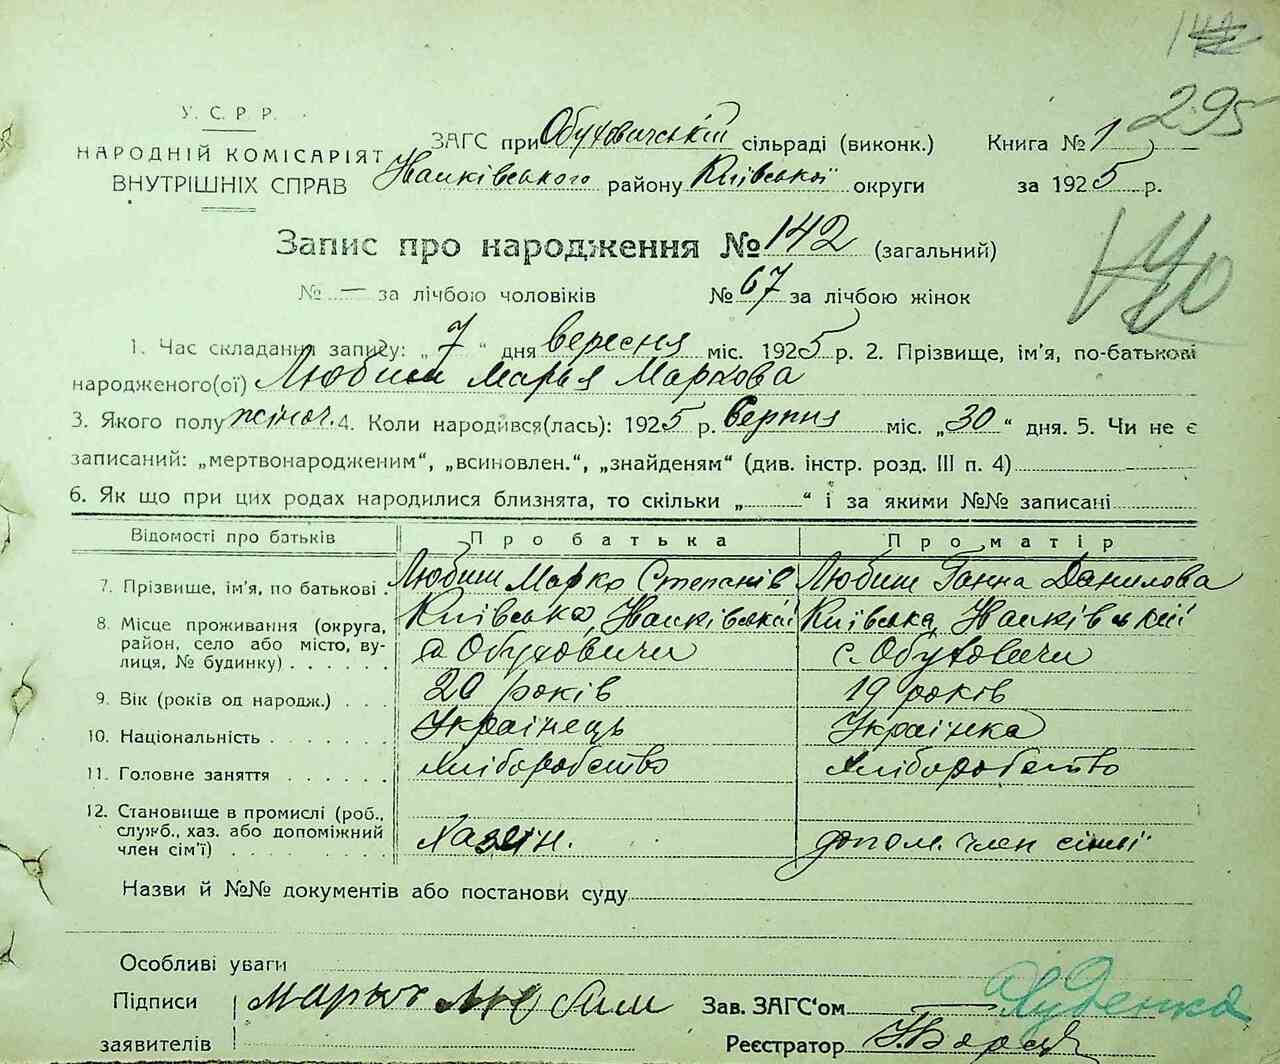 295
У. С. Р. Р.
НАРОДНІЙ КОМІСАРІЯТ
ВНУТРІШНІХ СПРАВ
ЗАГС при Обуховичській сільраді (виконк.) Книга № 1
Іванківського району Київської округи за 1925 р.
Запис про народження № 142 (загальний)
140
№ — за лічбою чоловіків № 67 за лічбою жінок
1. Час складання запису: „7“ дня вересня міс. 1925 р. 2. Прізвище, ім'я, по-батькові
народженого(ої) Любим Марья Маркова
3. Якого полу жіноч. 4. Коли народився(лась): 1925 р. Серпня міс. „30“ дня. 5. Чи не є
записаний: „мертвонародженим“, „всиновлен.“, „знайденям“ (див. інстр. розд. III п. 4)
6. Як що при цих родах народилися близнята, то скільки „ “ і за якими №№ записані
Відомості про батьків Про батька Про матір
7. Прізвище, ім'я, по батькові Любим Марко Степанів Любим Ганна Данилова
8. Місце проживання (округа, район, село або місто, вулиця, № будинку) Київська, Іванківської с. Обуховичи Київська, Іванківської с. Обуховичи
9. Вік (років од народж.) 20 років 19 років
10. Національність Українець Українка
11. Головне заняття Хліборобство Хліборобство
12. Становище в промислі (роб., служб., хаз. або допоміжний член сім'ї) Хазяїн. допом. член сімї
Назви й №№ документів або постанови суду
Особливі уваги
Підписи заявителів Любим
Зав. ЗАГС'ом
Реєстратор